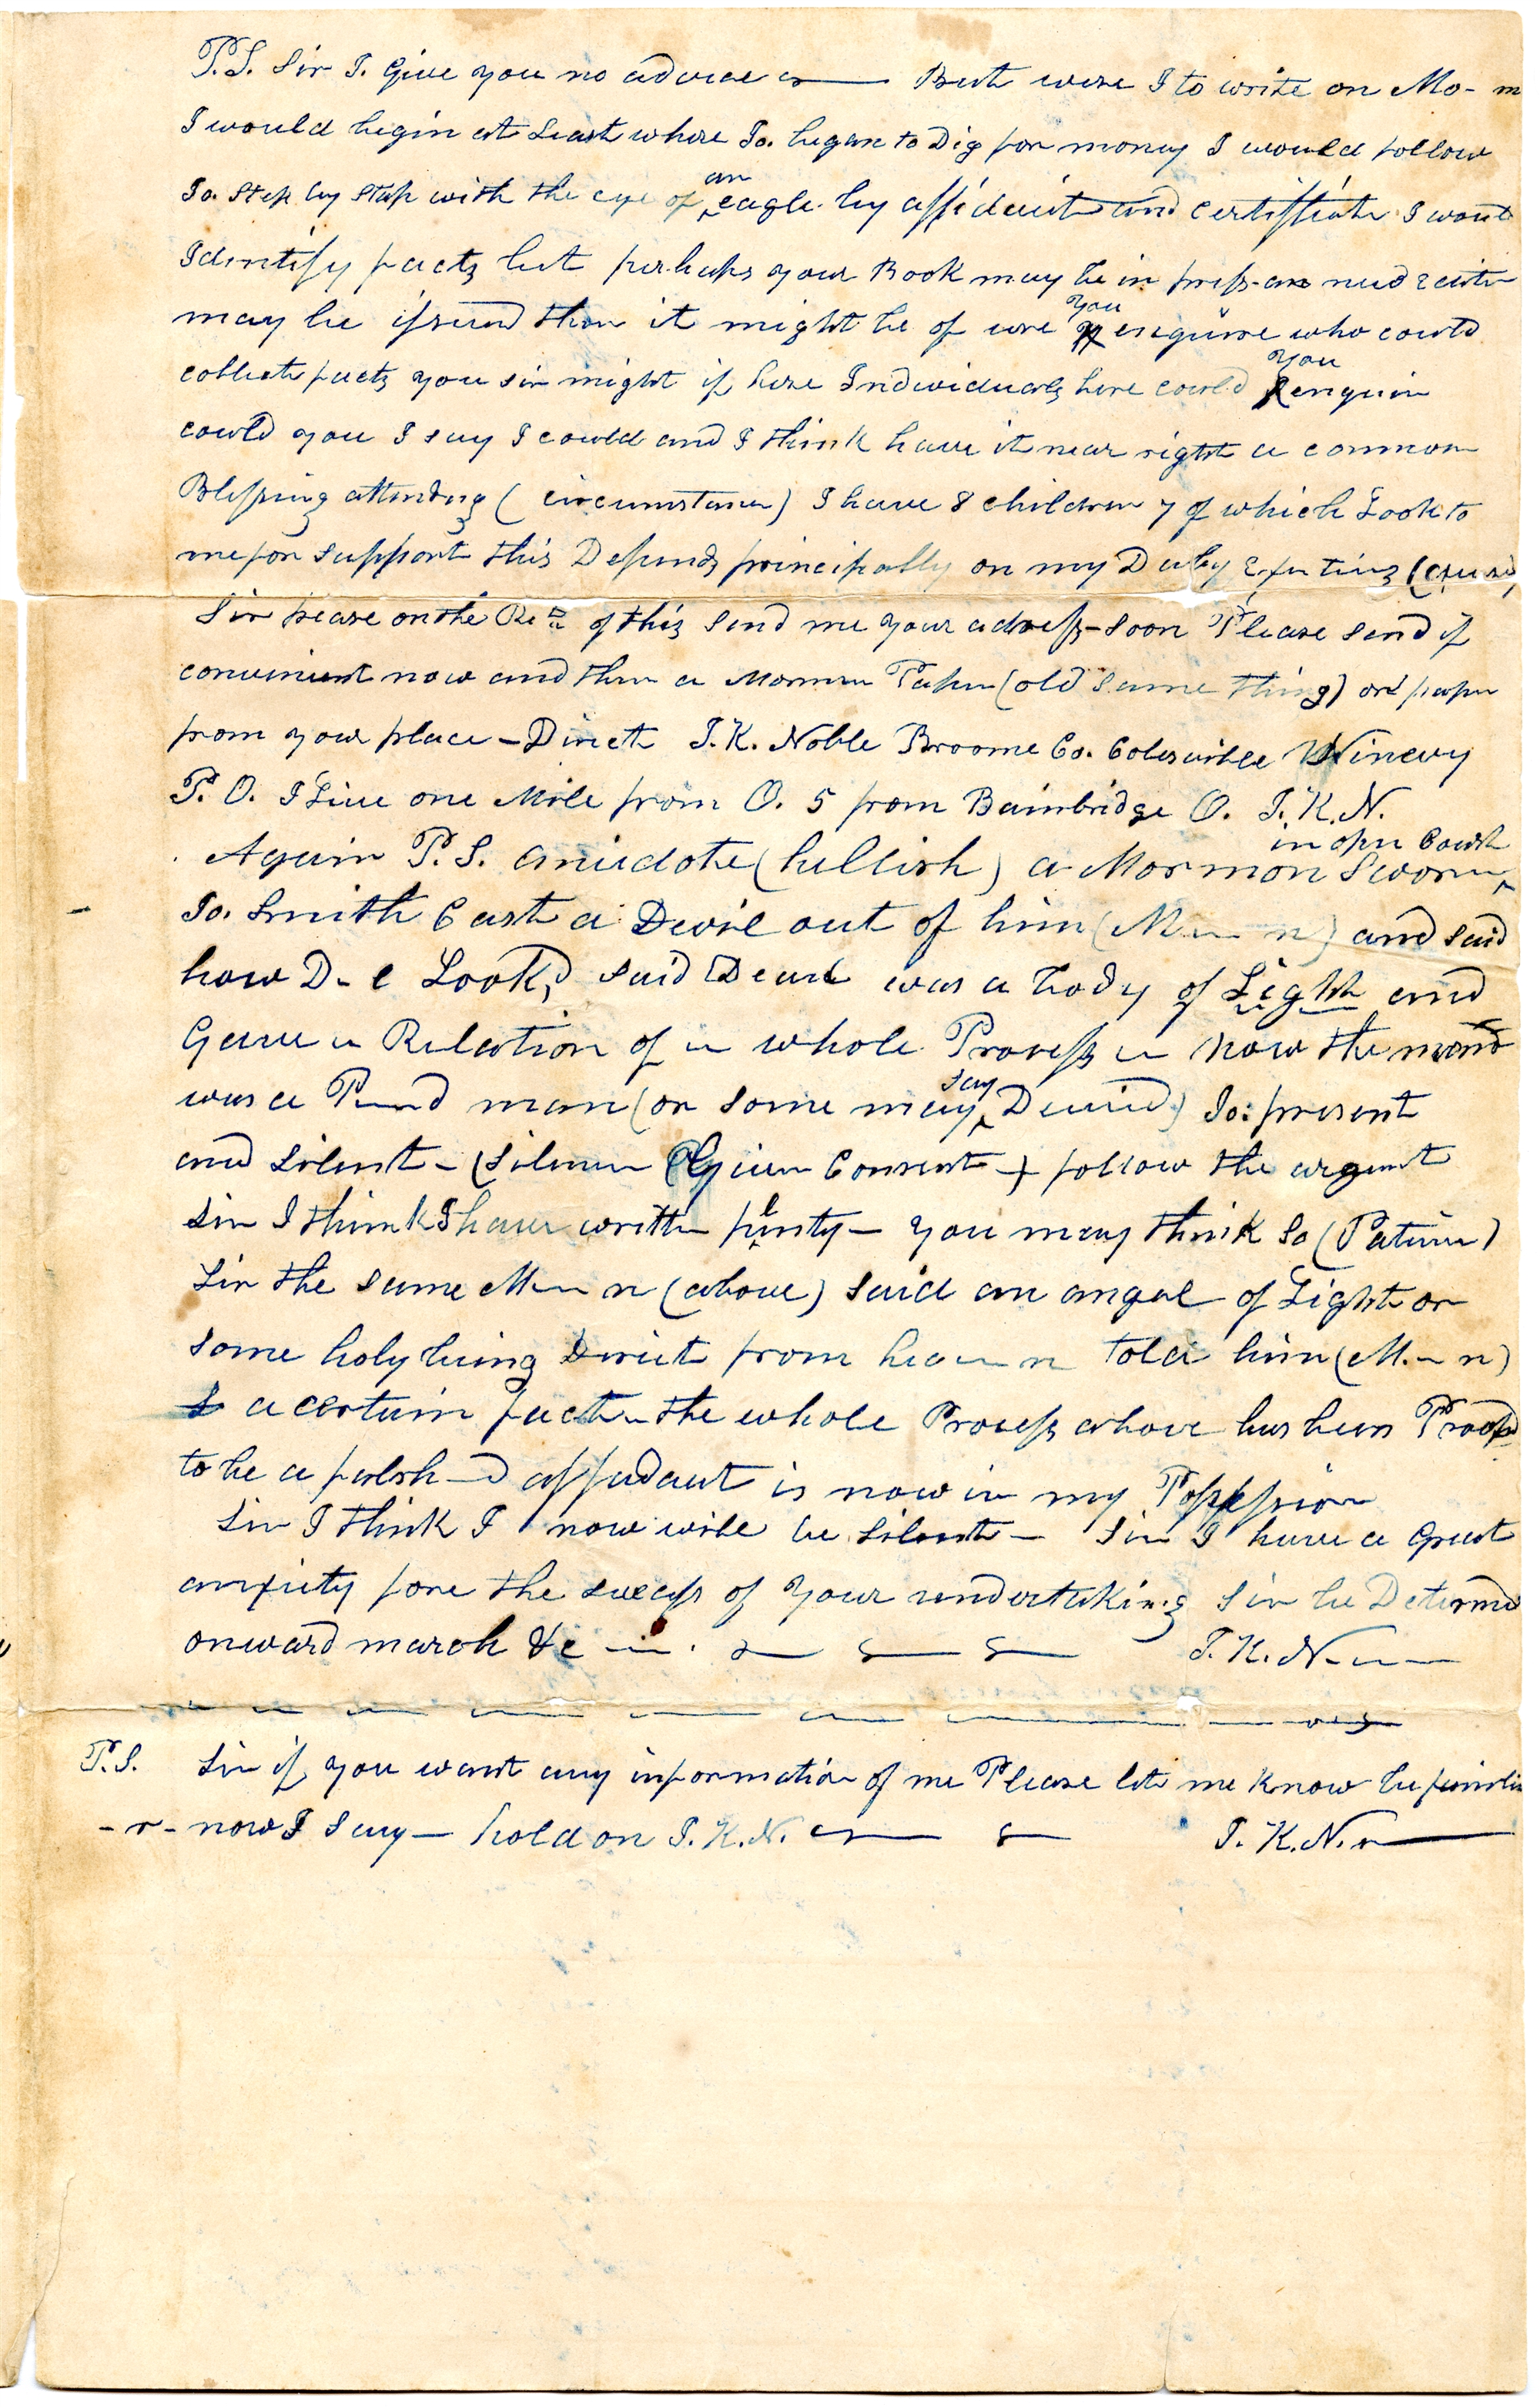 P.S. Sir I. Give you no advice — But were I to write on Mo- m
I would begin at Least where Jo. began to Dig for money I would follow
Jo. Step by Step with the eye of an eagle by affidavit and certifficate I would
Identify facts but perhaps your Book may be in press-an
may be issued then it might be of use you enquire who could
collect facts you sir might if here Individuals here could you enquire
could you I say I could and I think have it near right a common
Blessing attending (circumstances) I have 8 children 7 of which Look to
me for support this Depends principally on my Daily
Sir please on the Re of this send me your adress-soon Please send if
convenient now and then a Mormon Paper (old same thing) or paper
from your place — Direct J.K. Noble Broome Co. Colesville Ninevy
P.O. I Live one Mile from O. 5 from Bainbridge O. J.K.N.
Again P.S. anicdote (hellish) a Mormon Sworn in open Court
Jo. Smith Cast a Devil out of him (M-- n) and said
how D- l Look, said Deavl was a body of Light and
Gave a Relation of a whole Process - Now the mond
was a P--d man (or some may say Deceivd) Jo: present
and Silent — (Silence Given Consent — ) follow the argent
Sir I think I have written plinty — you may think So (Patience)
Sir the same M-- n (above) said an angel of Light or
some holy being Direct from hea--n told him (M.-- n)
a certain fact - the whole Process above has been Proofd
to be a falsh--d affadavit is now in my Possession
Sir I think I now will be Silent — Sir I have a Great
anxiety fore the success of your undertaking Sir be Determd
onward march &c — J. K. N---
P.S. Sir if you want any information of me Please let me know be
-r- now I say — hold on J.K.N. — J. K. N. —